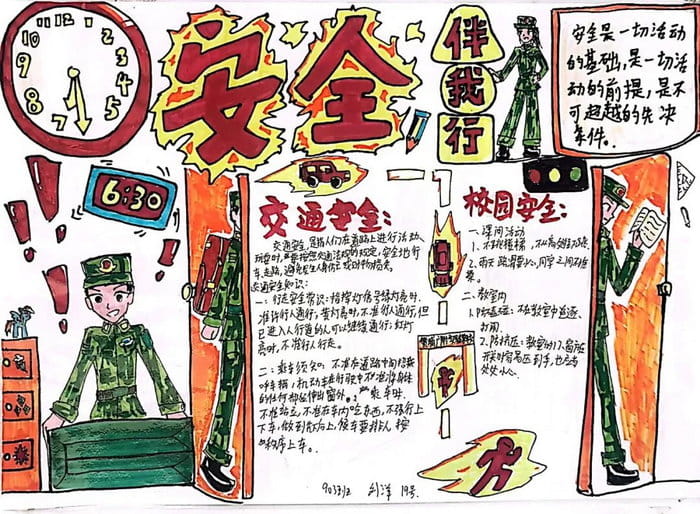 安全
伴我行
安全是一切活动
的基础,是一切活
动的前提,是不
可超越的先决
条件。
12
1
2
3
4
5
6
7
8
9
10
6:30
交通安全:
交通安全,是指人们在道路上进行活动、
玩耍时,要按照交通法规的规定,安全地行
车、走路,避免发生人身伤亡或财物损失。
交通安全知识:
一:行走安全常识:指挥灯信号绿灯亮时,
准许行人通行,黄灯亮时,不准行人通行,但
已进入人行道的人可以继续通行;红灯
亮时,不准行人行走。
二:乘车须知:不准在道路中间招
呼车辆,机动车在行驶中不准将身体
的任何部位伸出窗外。乘车时,
不准站立,不准在车内吃东西,不强行上
下车,做到先下后上,候车要排队,按
秩序上车。
校园安全:
一、课间活动
2、雨天路滑要小心,同学之间不推
二、教室内
教室中追逐、
打闹。
开关时容易压到手,也应当
处处小心。
903班
刘洋
19号